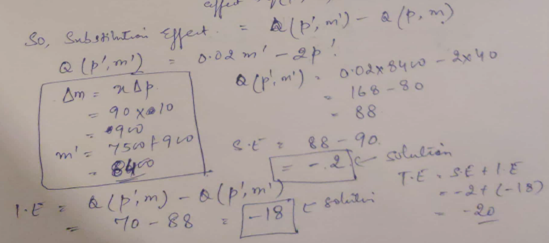 So, Substitution Effect. = Q(p', m') - Q(p, m)
Q(p', m') = 0.02 m' - 2p'
Δm = xΔp
= 90 × 10
= 900
m' = 7500 + 900
= 8400
Q(p', m') = 0.02×8400 - 2×40
= 168 - 80
= 88
S.E = 88 - 90
= -2 ← solution
I.E = Q(p', m) - Q(p', m')
= 70 - 88 = -18 ← solution
T.E = S.E + I.E
= -2 + (-18)
= -20